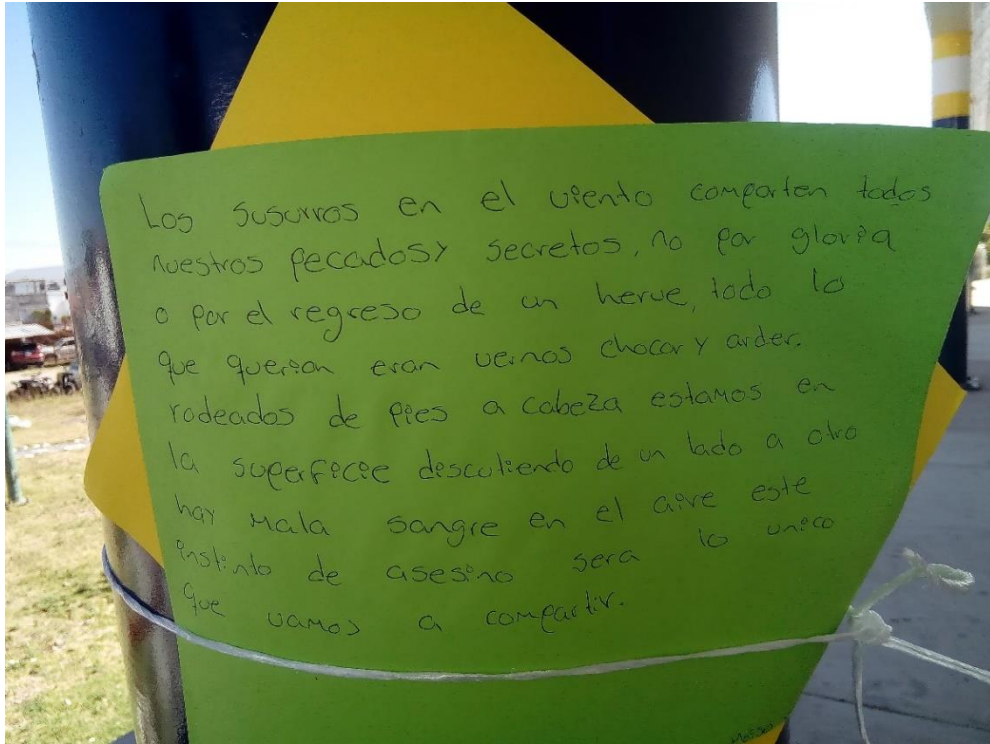 Los susurros en el viento comparten todos
nuestros pecados y secretos, no por gloria
o por el regreso de un herue, todo lo
que querian eran vernos chocar y arder.
rodeados de pies a cabeza estamos en
la superficie discutiendo de un lado a otro
hay mala sangre en el aire este
instinto de asesino sera lo unico
que vamos a compartir.